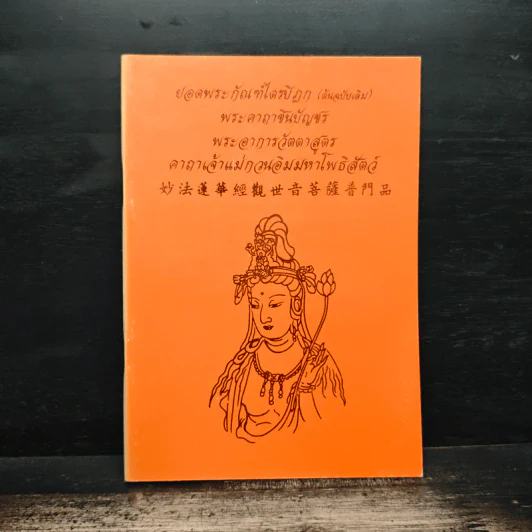 ยอดพระกัณฑ์ไตรปิฎก (ต้นฉบับเดิม)
พระคาถาชินบัญชร
พระอาการวัตตาสูตร
คาถาเจ้าแม่กวนอิมมหาโพธิสัตว์
妙法蓮華經觀世音菩薩普門品